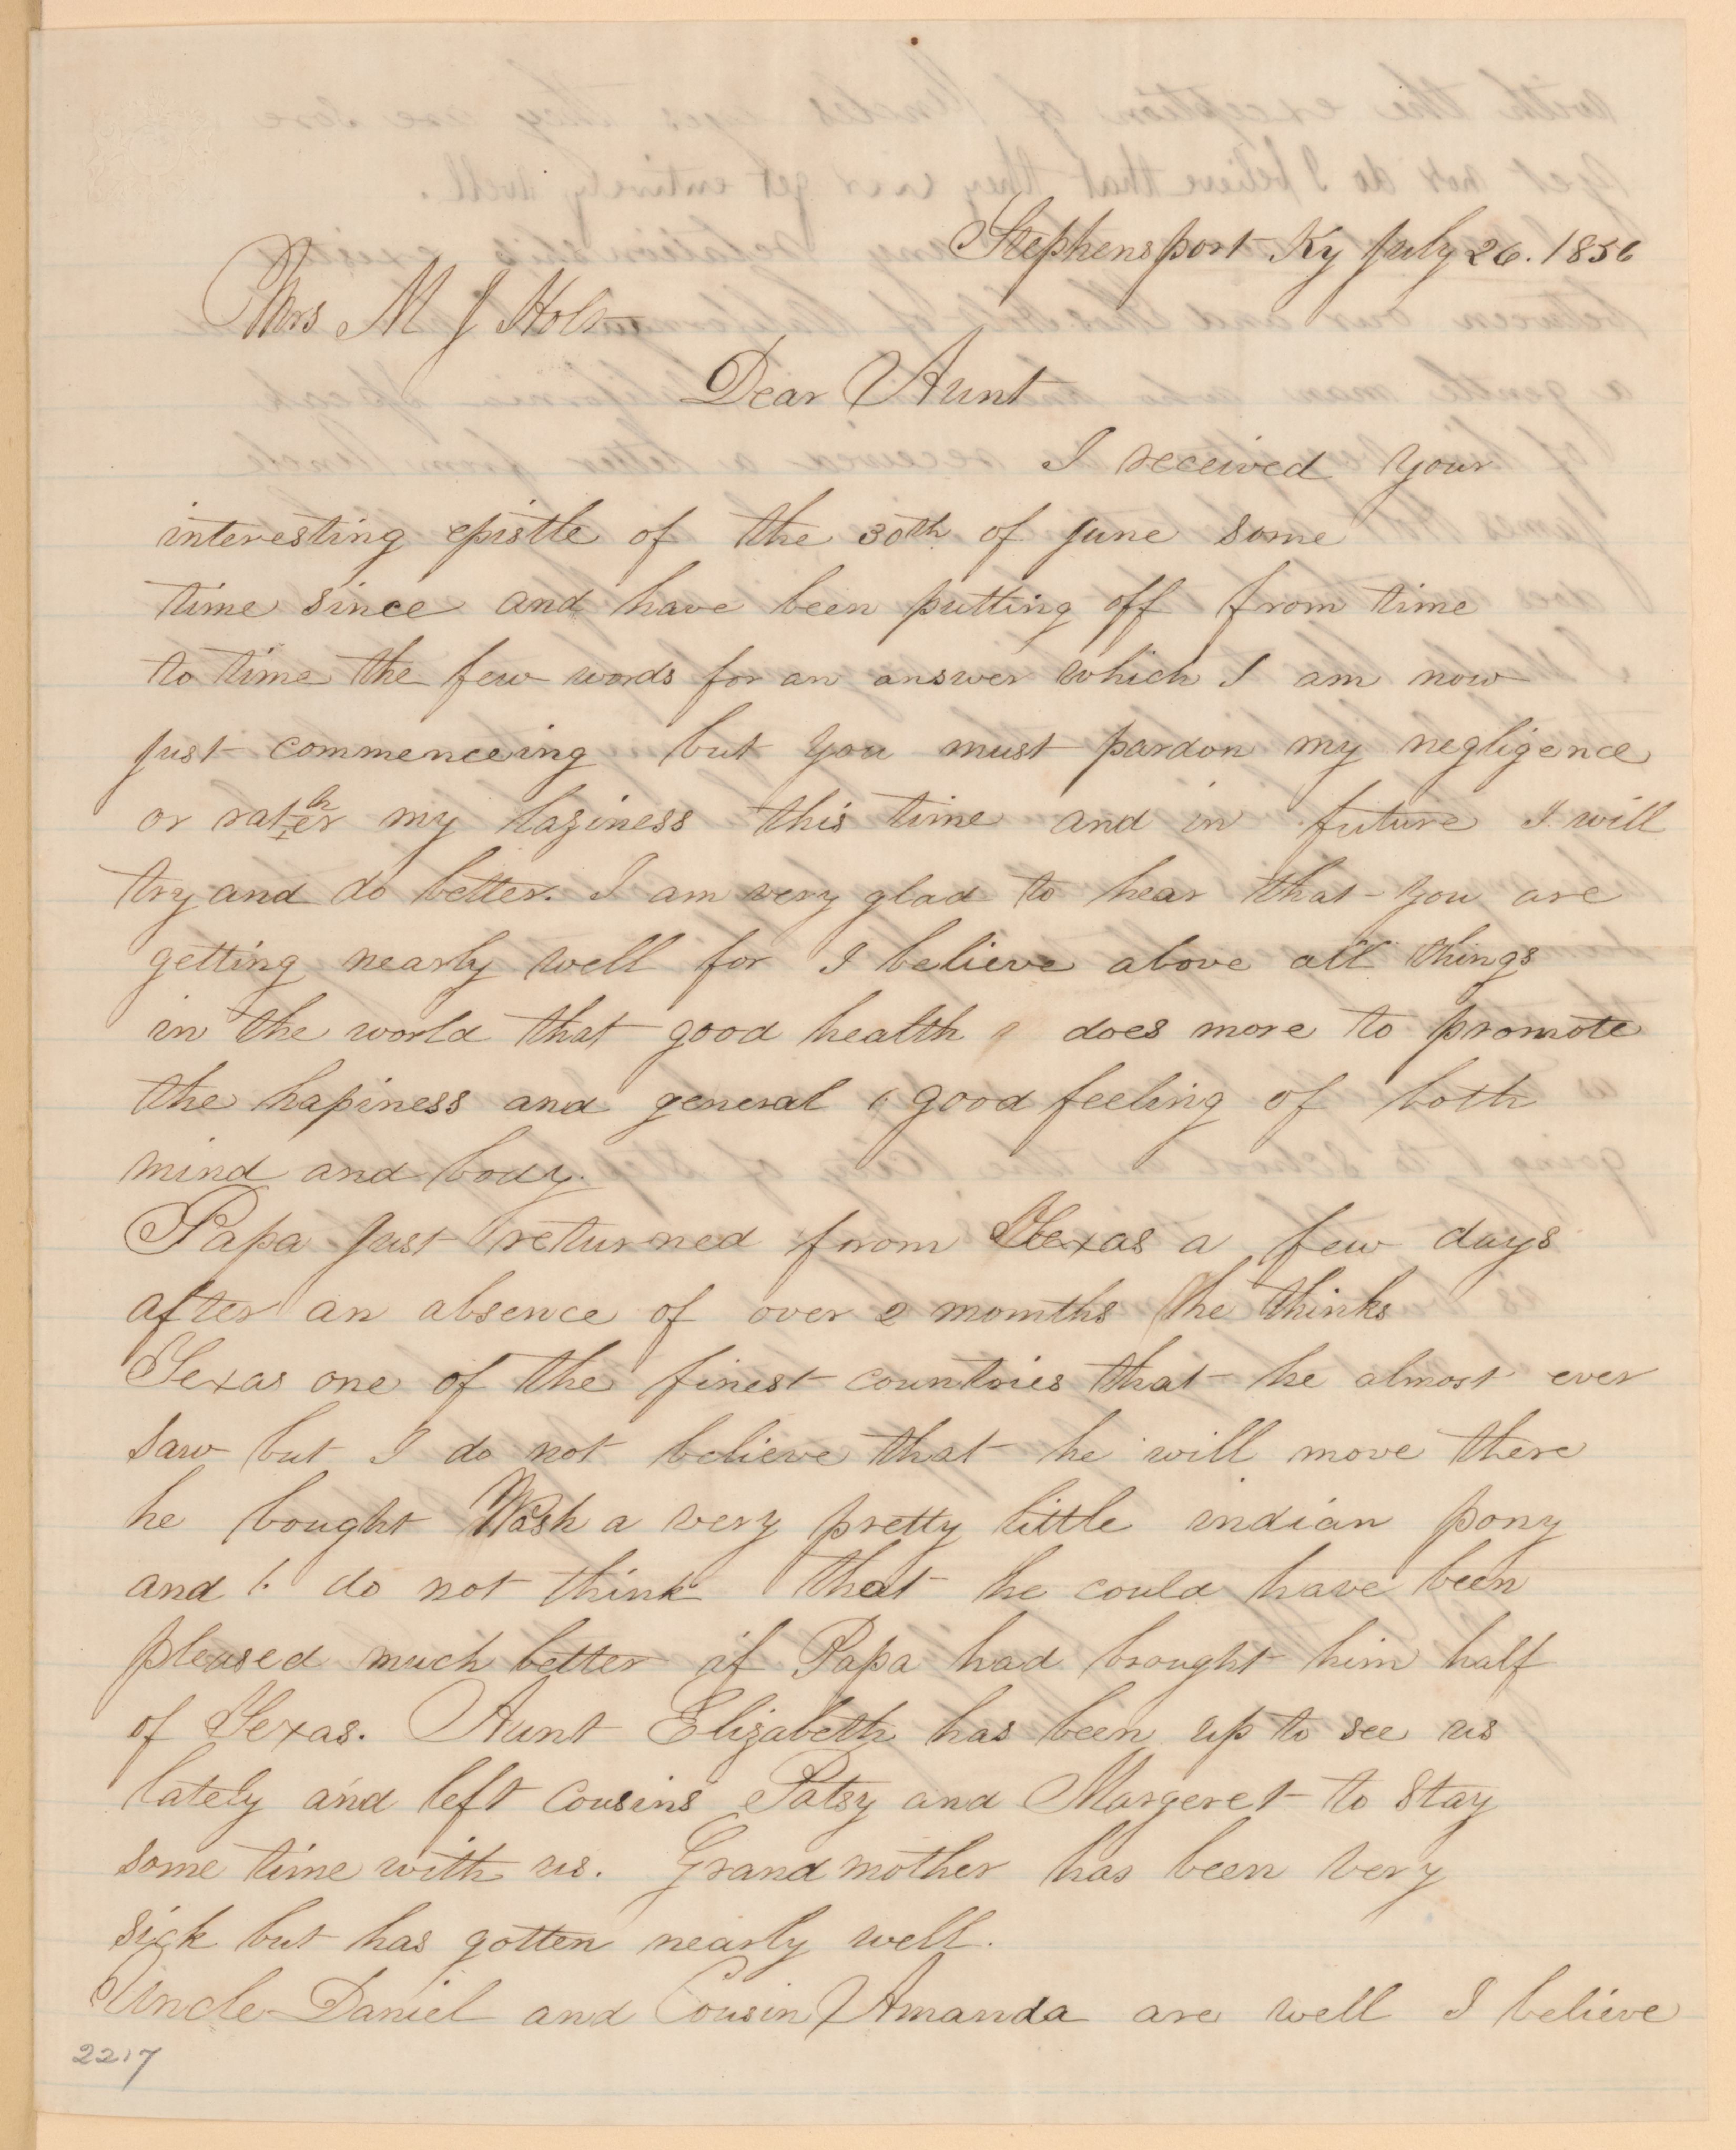 Stephensport Ky July 26. 1856
Mrs M J Holt
Dear Aunt
I received your
interesting epistle of the 30th of June some
time since and have been putting off from time
to time the few words for an answer which I am now
just commenceing but you must pardon my negligence
or rather my laziness this time and in future I will
try and do better. I am very glad to hear that you are
getting nearly well for I believe above all things
in the world that good health does more to promote
the hapiness and general good feeling of both
mind and body.
Papa just returned from Texas a few days
after an absence of over 2 momths he thinks
Texas one of the finest countries that he almost ever
saw but I do not believe that he will move there
he bought Wash a very pretty little indian pony
and I do not think that he could have been
pleased much better if Papa had brought him half
of Texas. Aunt Elizabeth has been up to see us
lately and left cousins Patsy and Margeret to stay
some time with us. Grandmother has been very
sick but has gotten nearly well.
Uncle Daniel and Cousin Amanda are well I believe
2217